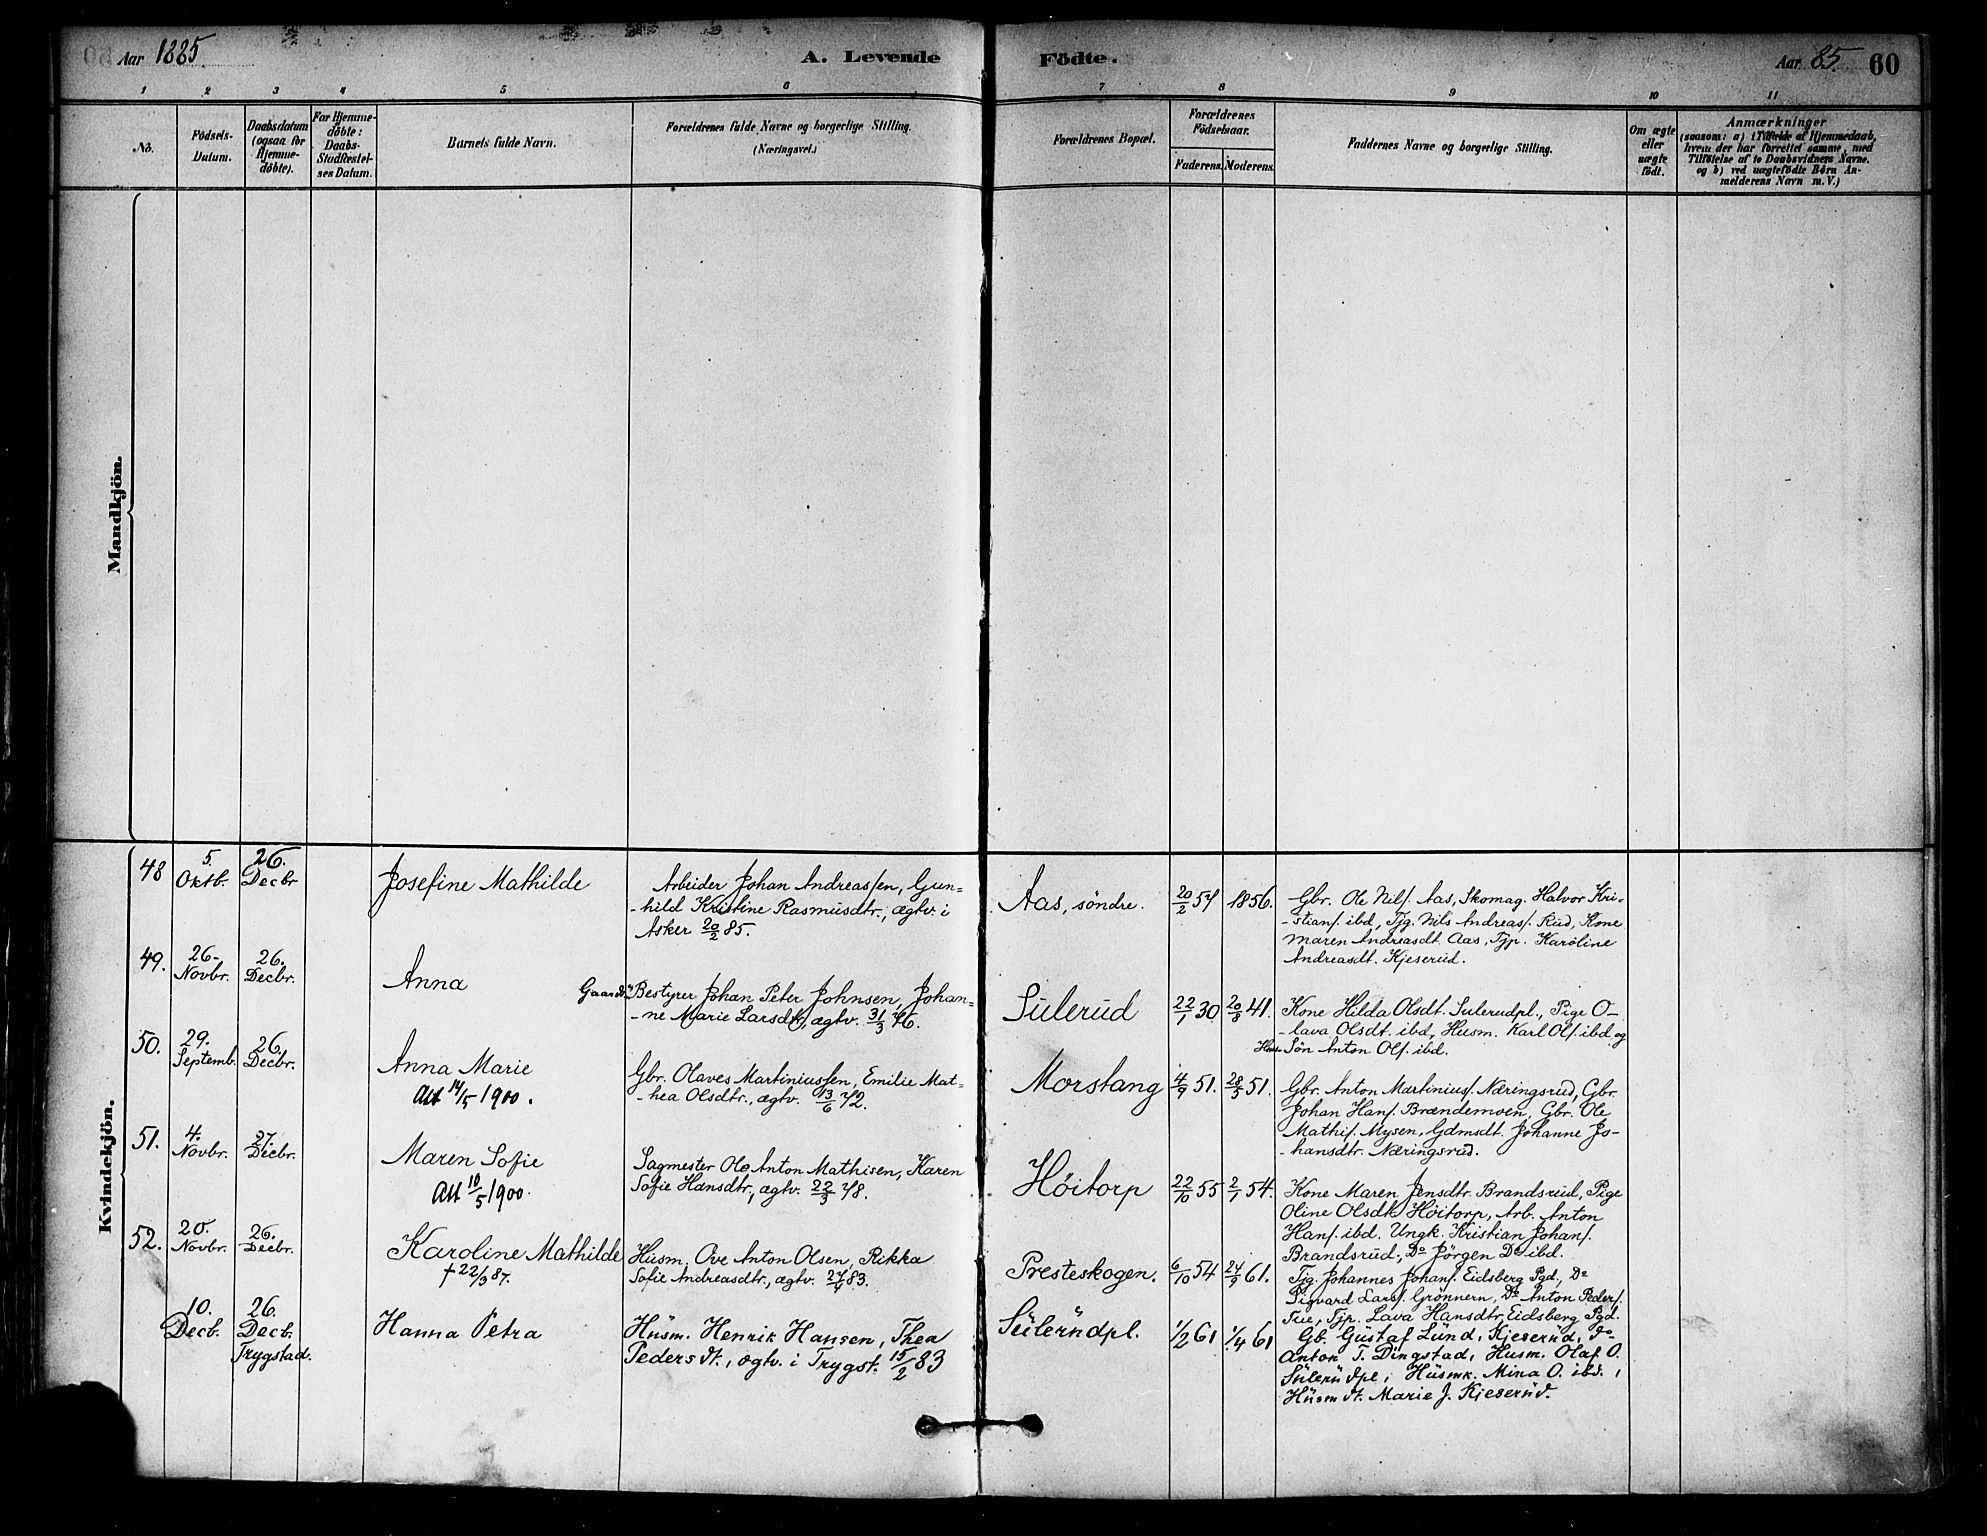 Aar 1885.
A. Levende
Födte.
Aar 85.
60
1 2 3 4 5 6 7 8 9 10 11
No.
Födsels-
Datum.
Daabsdatum
(ogsaa for
Hjemme-
döbte).
For Hjemme-
döbte:
Daabs-
Stadfæstel-
ses Datum.
Barnets fulde Navn.
Forældrenes fulde Navne og borgerlige Stilling.
(Næringsvei.)
Forældrenes Bopæl.
Forældrenes
Födselsaar.
Faderens. Moderens.
Faddernes Navne og borgerlige Stilling.
Om ægte
eller
uægte
födt.
Anmærkninger
(saasom: a) i Tilfælde af Hjemmedaab,
hvem der har forrettet samme, med
Tilföielse af to Daabsvidners Navne.
og b) ved uægtefödte Børn An-
melderens Navn m. V.)
Mandkjön.
Kvindekjön.
48
5.
Oktb.
26.
Decbr
Josefine Mathilde
Arbeider Johan Andreassen, Gun-
-hild Kristine Rasmusdtr., ægtv. i
Asker 20/2 85.
Aas, söndre.
20/2 57
1856.
Gbr. Ole Nils. Aas, Skomag. Halvor Kri-
-stians. ibd, Tjg. Nils Andreas. Rud, Kone
Maren Andreasdt. Aas, Tjp. Karoline
Andreasdt. Kjeserud.
49.
26-
Novbr.
26.
Decbr.
Anna
Gaards
Bestyrer Johan Peter Johnsen, Johan-
-ne Marie Larsdtr, ægtv. 31/3 76.
Sulerud
22/1 30
20/8 41.
Kone Hilda Olsdt. Sulerudpl., Pige O-
-lava Olsdt. ibd, Husm. Karl Ols. ibd. og
Hans Søn Anton Ols. ibd.
50.
29.
Septemb.
26.
Decbr.
Anna Marie
Att 14/5 1900.
Gbr. Olaves Martiniussen, Emilie Mat-
-hea Olsdtr., ægtv. 13/6 72.
Morstang
4/9 51.
28/3 51.
Gbr. Anton Martinius. Næringsrud, Gbr.
Johan Hans. Brændemoen, Gbr. Ole
Mathis. Mysen, Gdmsdt. Johanne Jo-
-hansdtr. Næringsrud.
51.
4.
Novbr.
27.
Decbr.
Maren Sofie
Att 10/5 1900.
Sagmester Ole Anton Mathisen, Karen
Sofie Hansdtr, ægtv. 22/3 78.
Höitorp
22/10 55
2/1 54.
Kone Maren Jensdtr. Brandsrud, Pige
Oline Olsdtr. Höitorp, Arb. Anton
Hans. ibd. Ungk. Kristian Johans.
Brandsrud, Do Jörgen Do ibd.
52.
20.
Novbr.
26.
Decbr.
Karoline Mathilde
† 22/3 87.
Husm. Ove Anton Olsen, Rikka
Sofie Andreasdtr., ægtv. 27/4 83.
Presteskogen.
6/10 54
24/9 61.
Tjg. Johannes Johans. Eidsberg Pgd., Do
Sigvard Lars. Grönnern, Do Anton Peders.
Tue, Tjp. Lava Hansdtr, Eidsberg Pgd.
10.
Decb.
26.
Decb.
Trygstad.
Hanna Petra
Husm. Henrik Hansen, Thea
Pedersdt., ægtv. i Trygst. 15/2 83
Sulerudpl.
1/2 61
1/4 61
Gb. Gustaf Lund, Kjeserud, do
Anton T. Dingstad, Husm. Olaf O.
Sulerudpl, Husmk. Mina O. ibd.,
Husmdt. Marie J. Kjeserud.